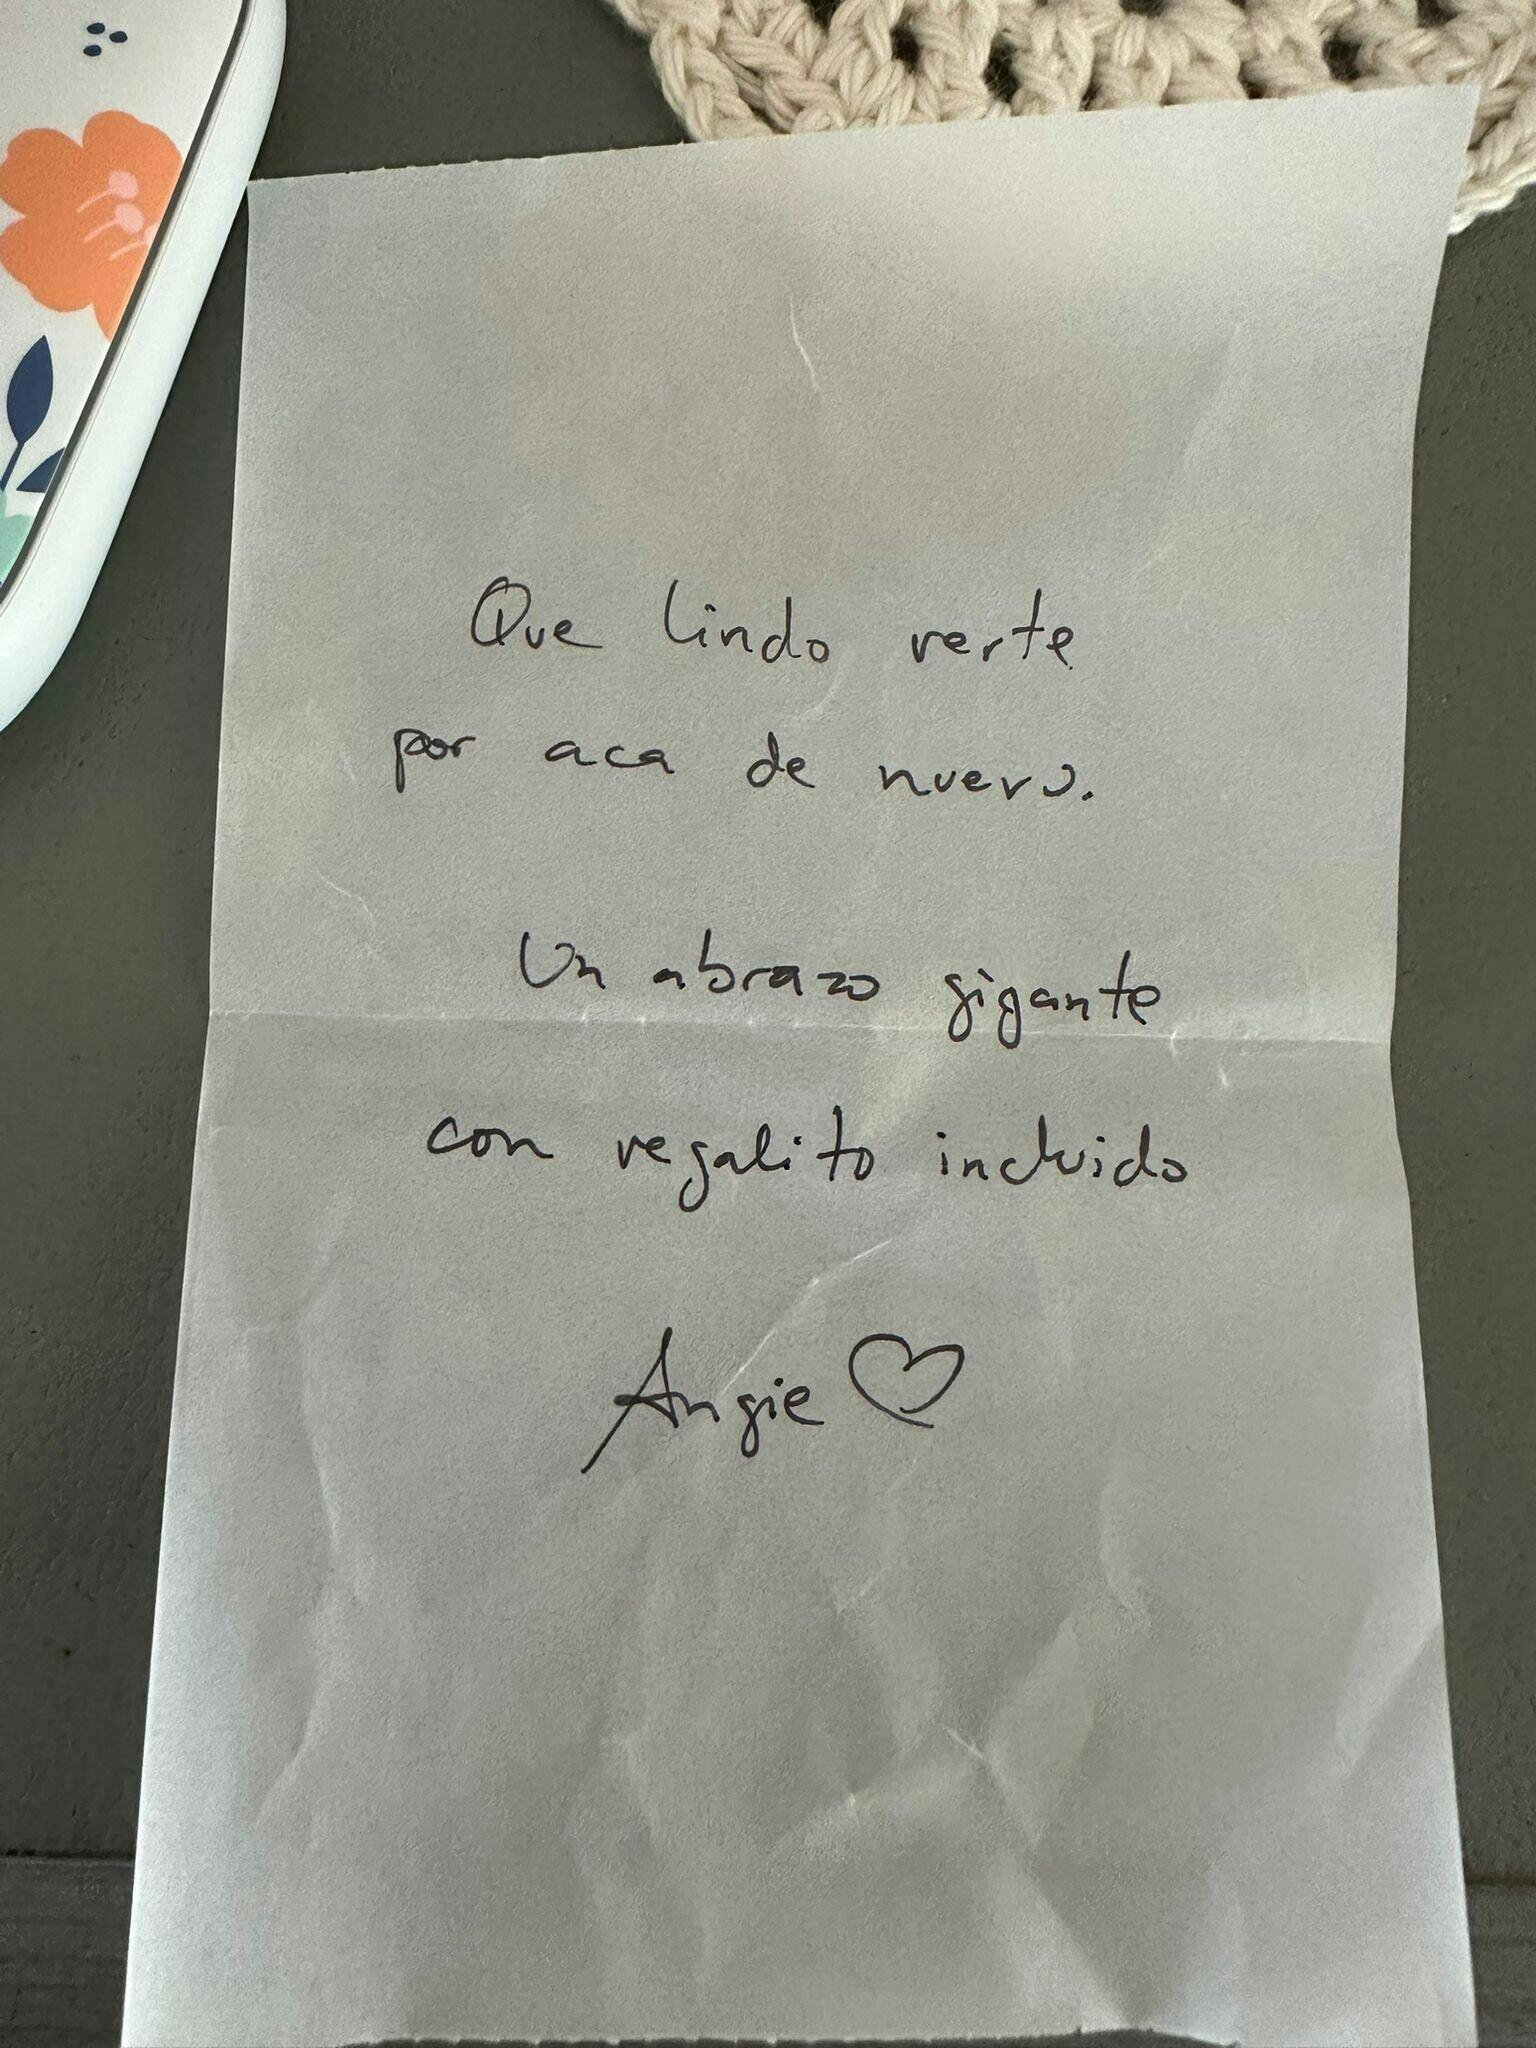 Que lindo verte
por aca de nuevo.
Un abrazo gigante
con regalito incluido
Angie ♡